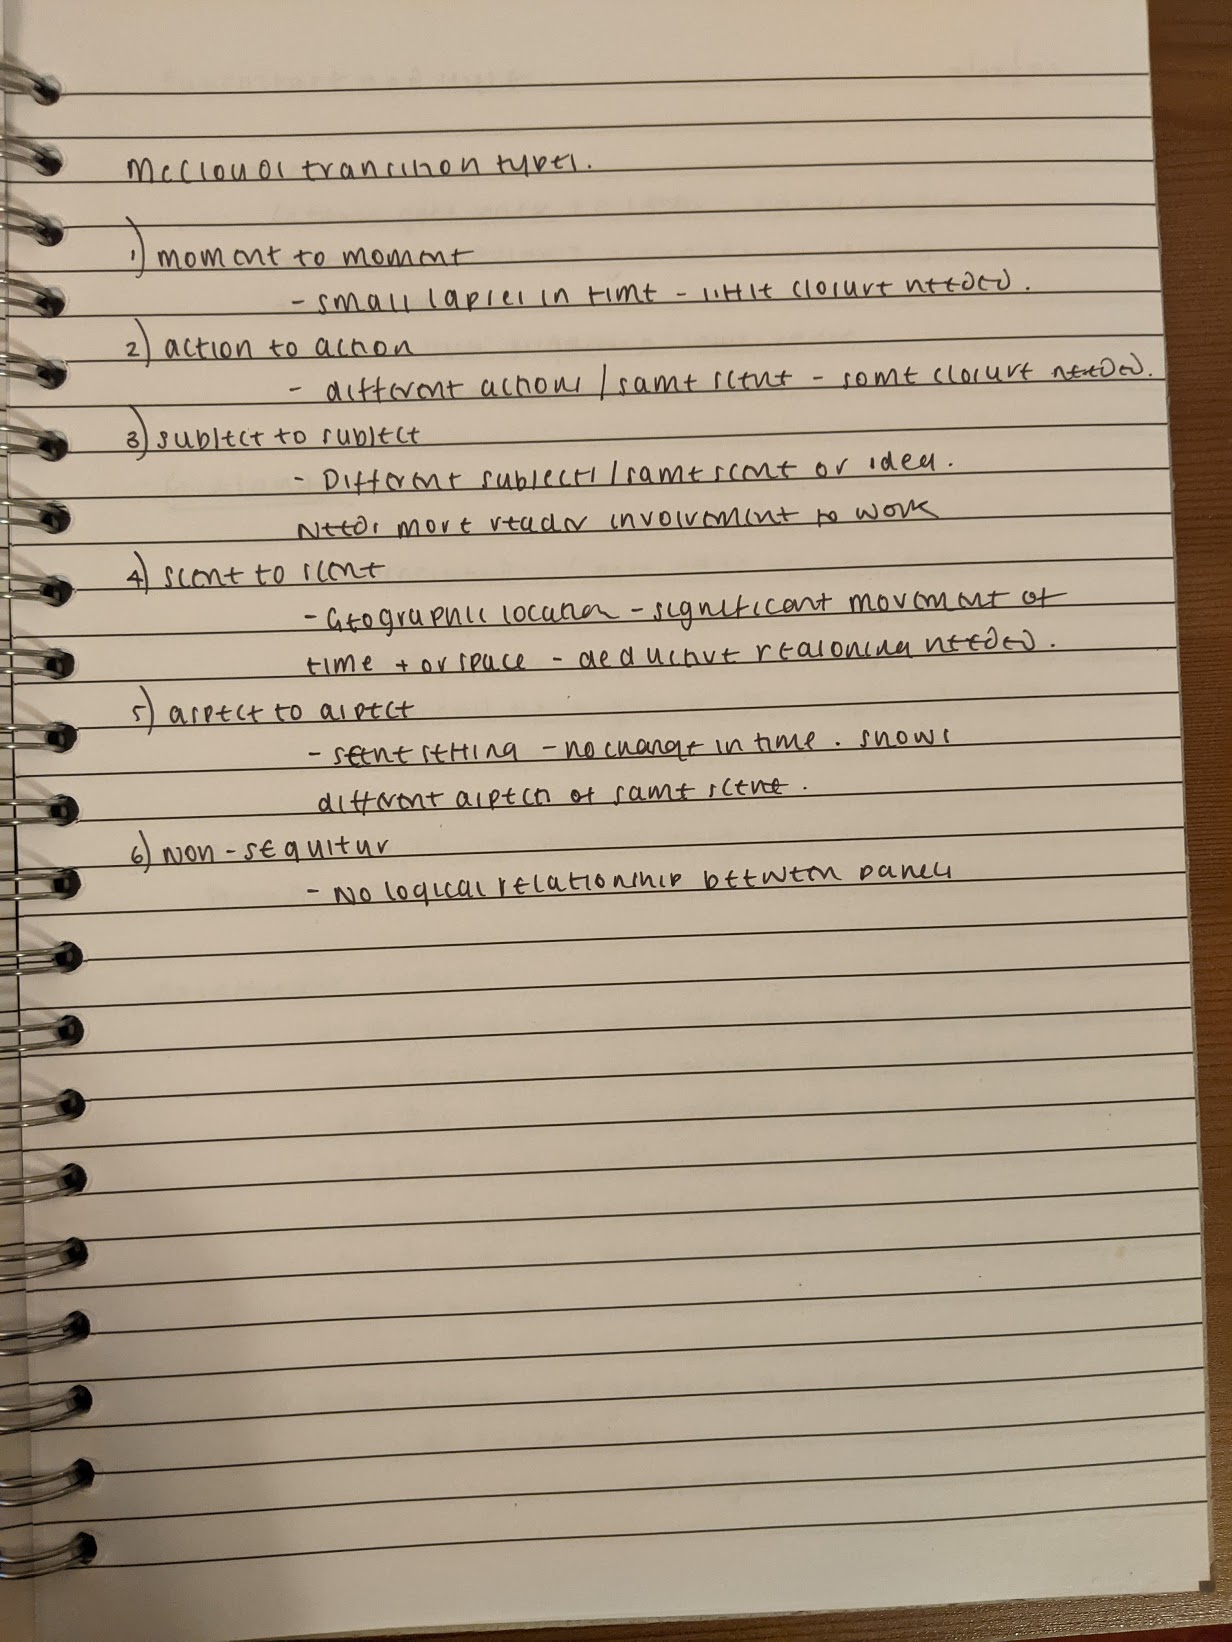 McCloud transition types.
1) moment to moment
- small lapses in time - little closure needed.
2) action to action
- different actions / same scene - some closure needed.
3) subject to subject
- Different subjects / same scene or idea.
Needs more reader involvement to work
4) scene to scene
- Geographic location - significant movement of
time + or space - deductive reasoning needed.
5) aspect to aspect
- scene setting - no change in time. shows
different aspects of same scene.
6) Non-sequitur
- No logical relationship between panels